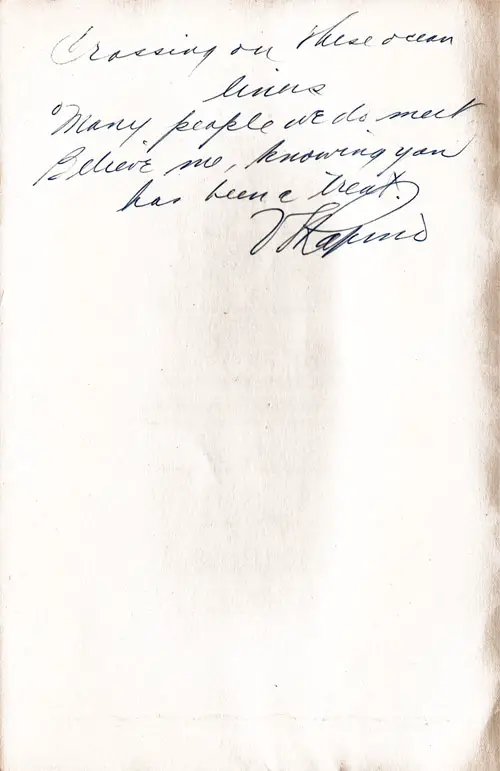 Crossing on these ocean
liners
Many people we do meet
Believe me, knowing you
has been a treat.
Shapiro